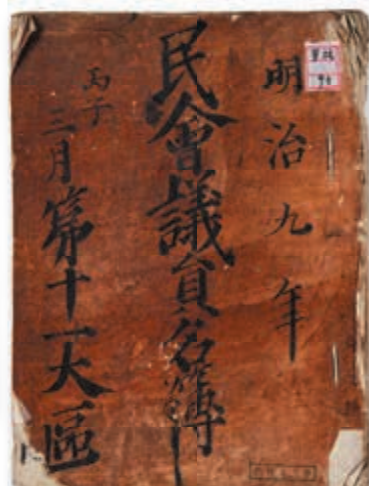 明治九年
民會議員名簿
丙子
三月第十一大區